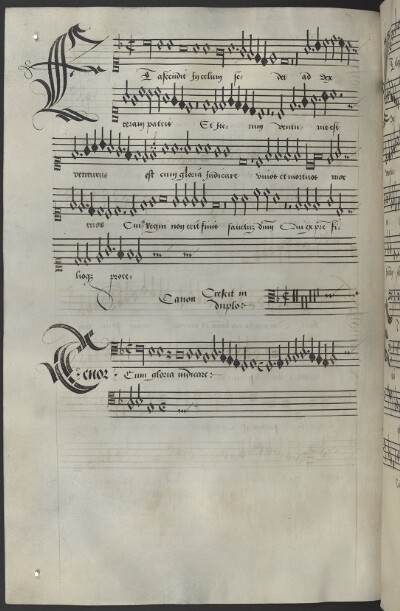 Et ascendit in celum se det ad dex
teram patris Et ite rum ventu rus est
venturus est cum gloria Judicare vivos et mortuos mor
tuos Cuius regni non erit finis sanctum dnm Qui ex pre fi
lioqz proce:
Canon Crescit in
duplo:
Tenor Cum gloria iudicare: